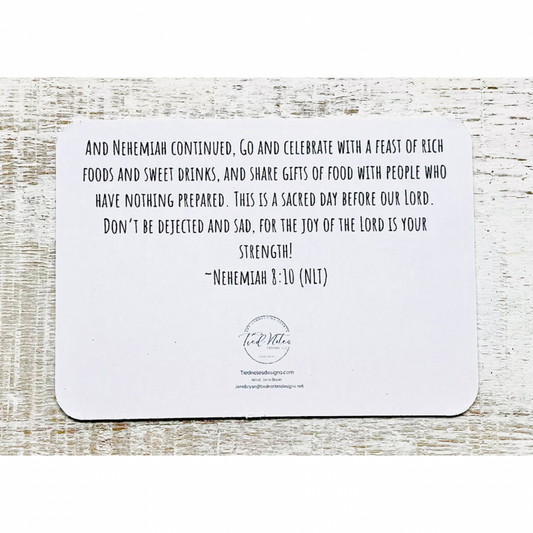 And Nehemiah continued, Go and celebrate with a feast of rich
foods and sweet drinks, and share gifts of food with people who
have nothing prepared. This is a sacred day before our Lord.
Don't be dejected and sad, for the joy of the Lord is your
strength!
~Nehemiah 8:10 (NLT)
Tied Notes
Tiednotesdesigns.com